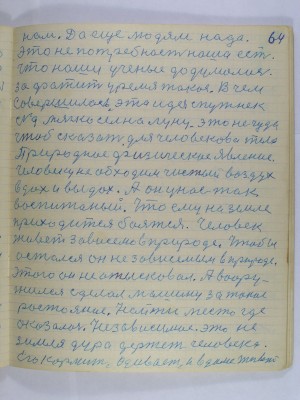 нам. Да еще людям нада. 64
Это не потребност наша ест.
Что наши ученые додумолис
затратит время такое. В чем
совершилося, это идея спутнек
сел на луну. это не чуда
чтоб сказат для человекова тела
Природное физическое явление.
Человеку необходим чистый воздух
вдох и выдох. А он у нас так
воспитаный. Что ему на земле
приходится боятся. Человек
живет зависемо в природе. Чтобы
остался он независемым в природе.
Этого он не отысковал. А воору-
жился сделал машину за такое
растояние. Найти место где
оказался. Независимое. это не
земля дура держет человека.
Его кормит, одивает, и в доме живет